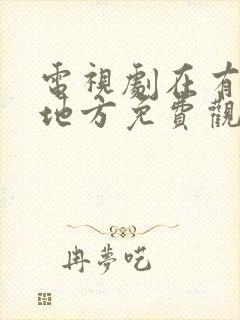 電視劇在有
地方免費觀
冉夢呓